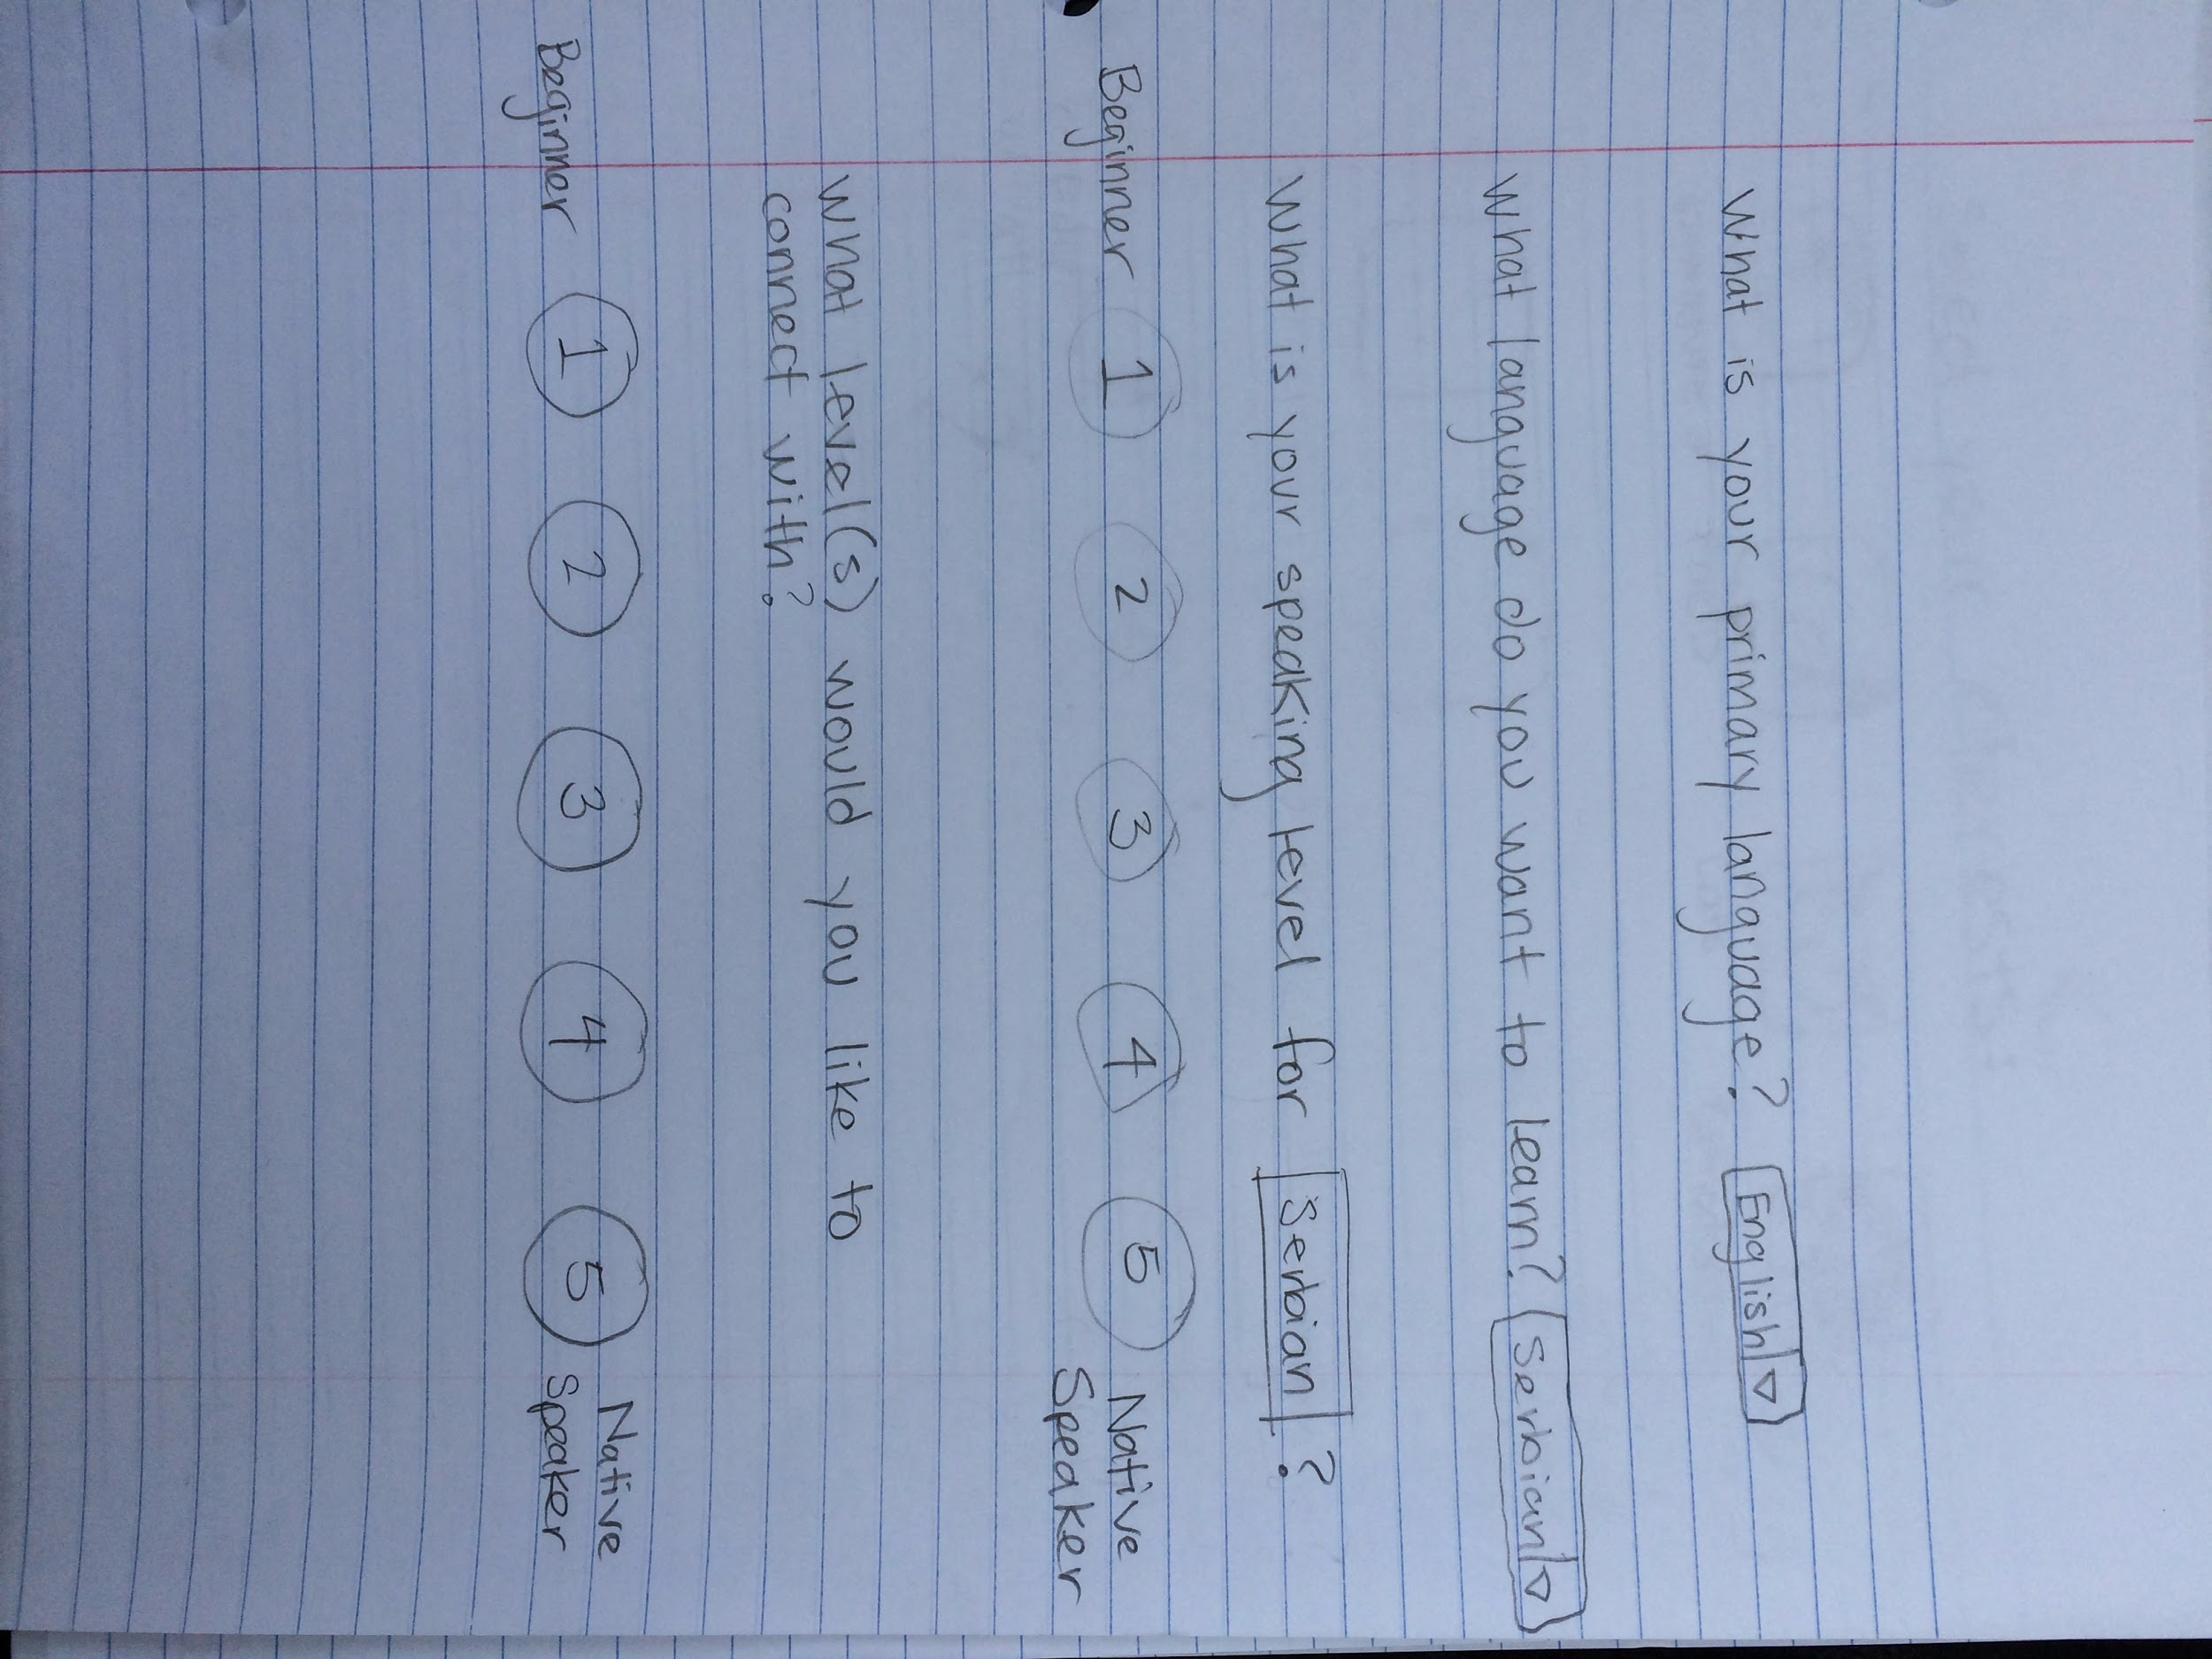 What is your primary language? English ▽
What language do you want to learn? Serbian ▽
What is your speaking level for Serbian ?
Beginner 1 2 3 4 5 Native
Speaker
What level(s) would you like to
connect with?
Beginner 1 2 3 4 5 Native
Speaker